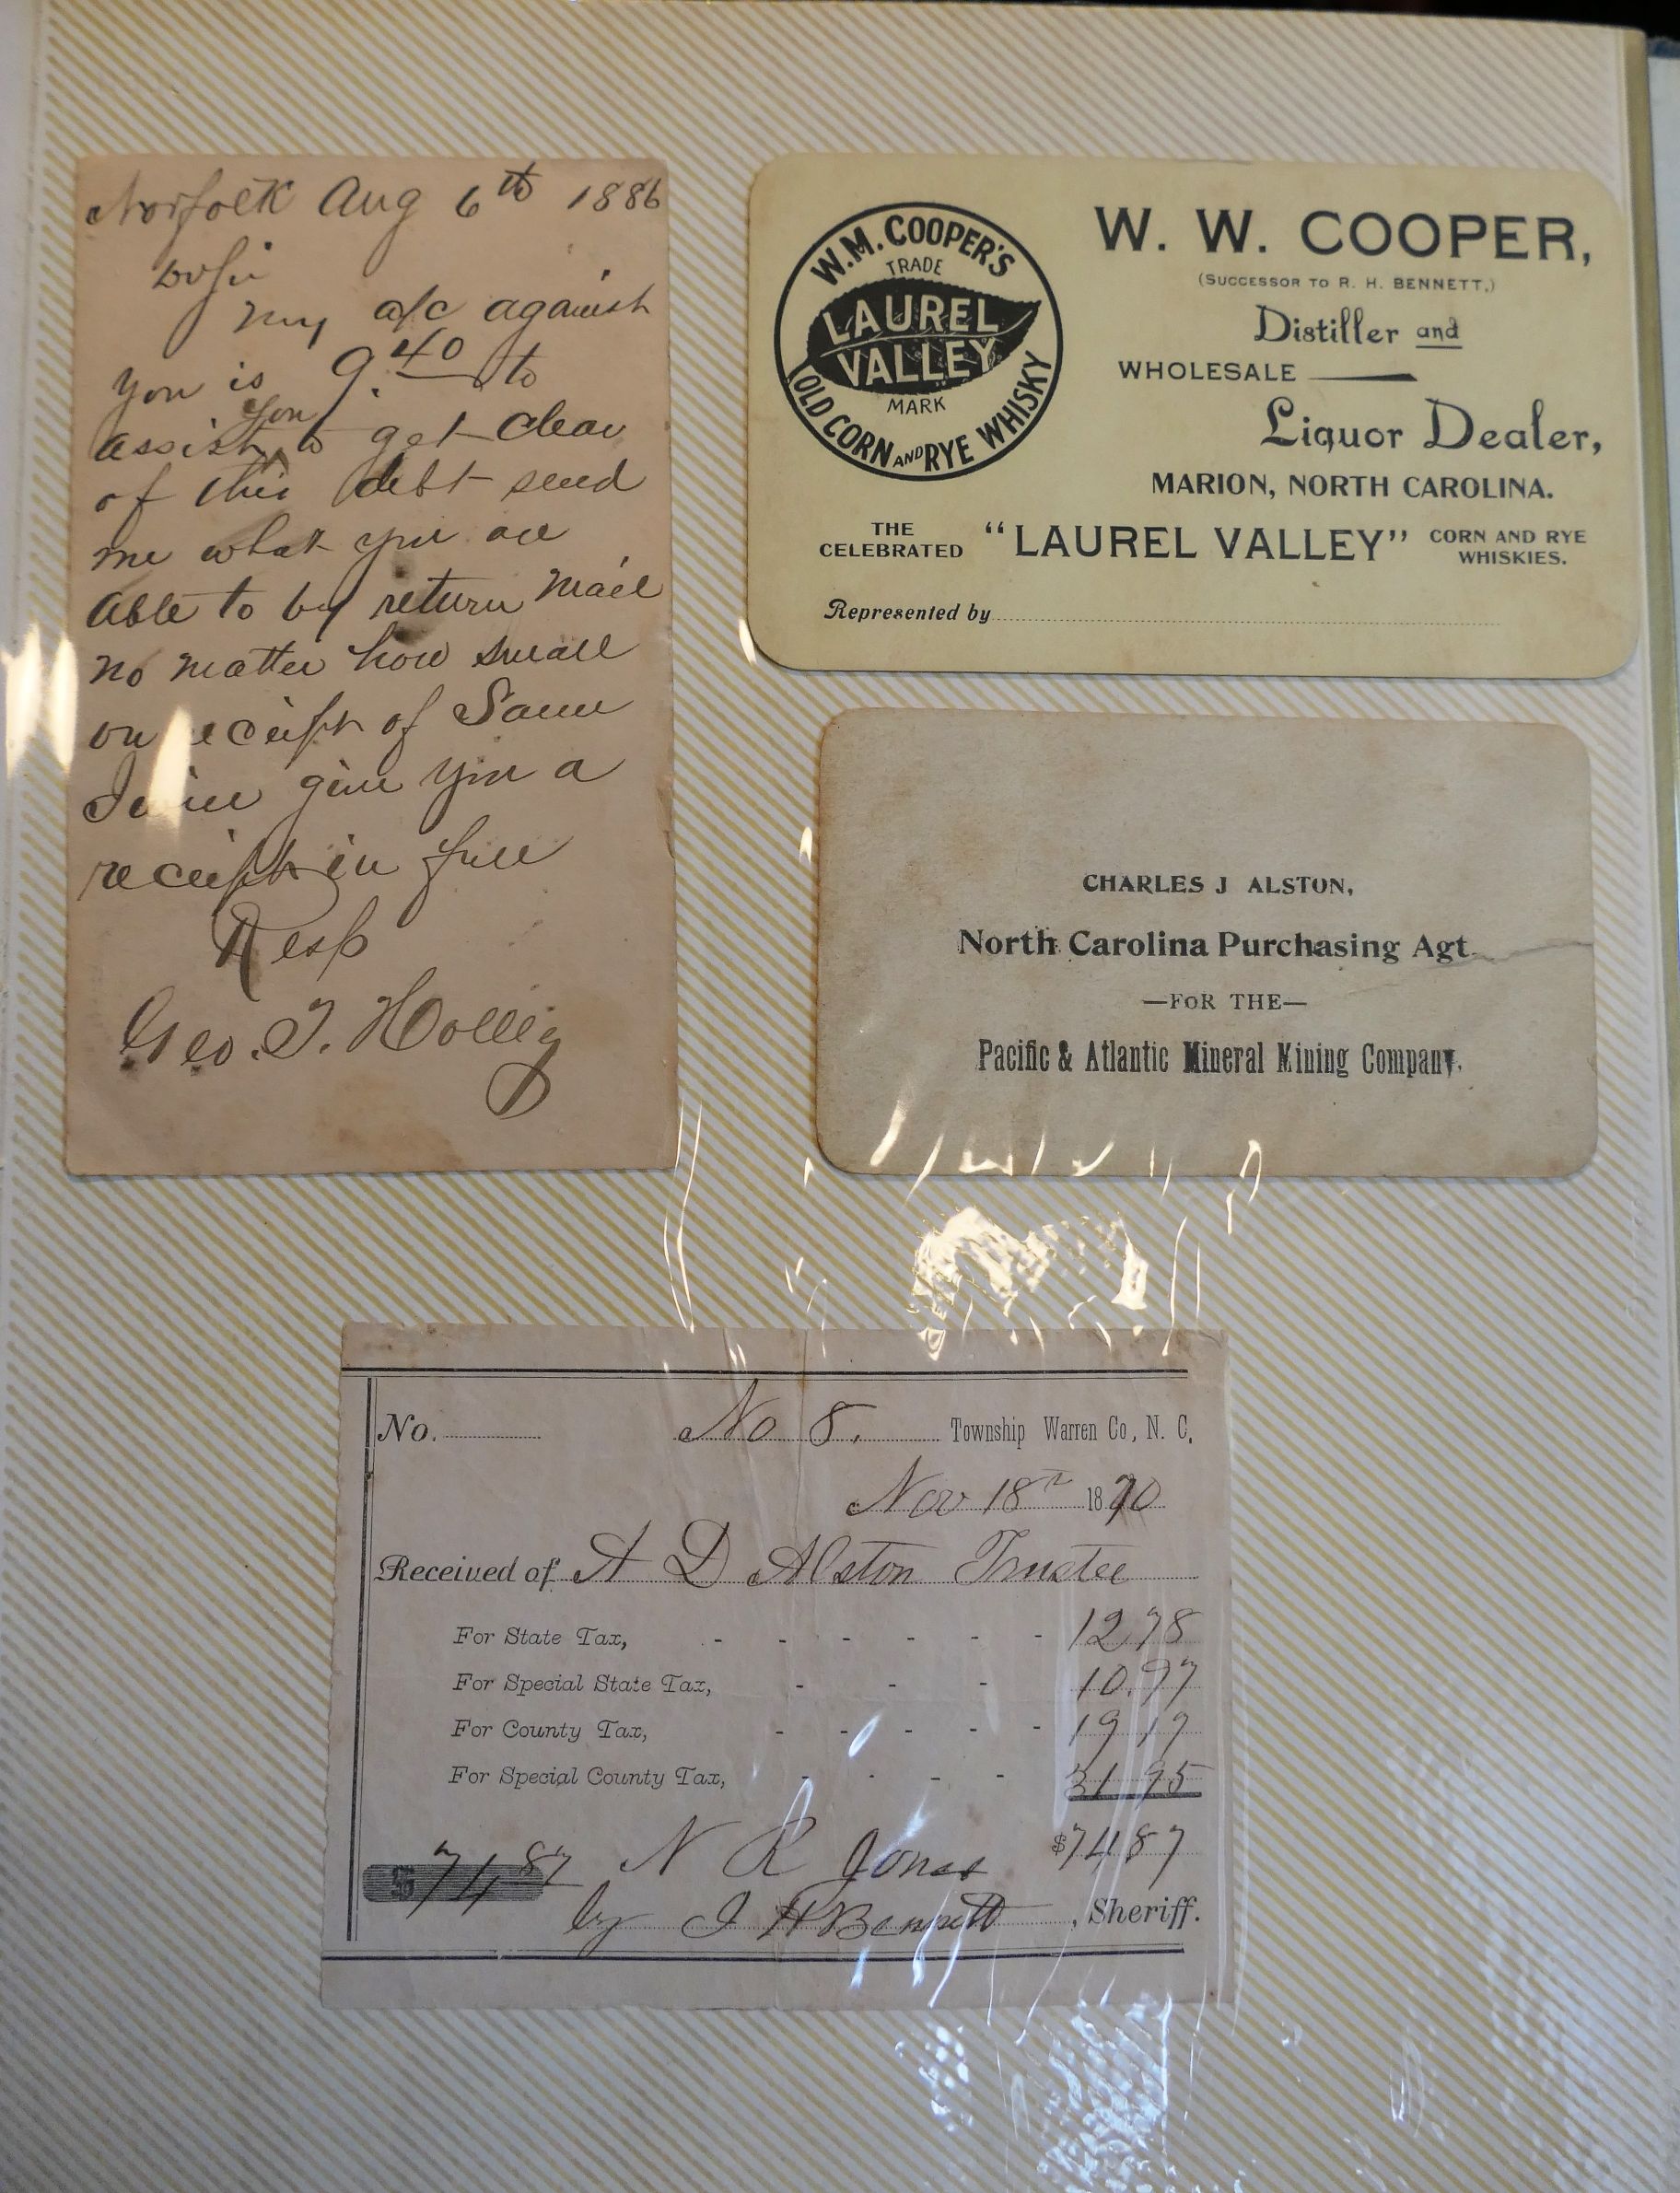 Norfolk Aug 6th 1886
Dr Sir
My a/c against
you is 9.40 to
assist you to get clear
of this debt send
me what you are
able to by return mail
no matter how small
on receipt of Same
I will give you a
receipt in full
Resp
Geo. T.
W.M. COOPER'S
TRADE
LAUREL
VALLEY
MARK
OLD CORN AND RYE WHISKY
W. W. COOPER,
(SUCCESSOR TO R. H. BENNETT,)
Distiller and
WHOLESALE
Liquor Dealer,
MARION, NORTH CAROLINA.
THE CELEBRATED "LAUREL VALLEY" CORN AND RYE WHISKIES.
Represented by
CHARLES J ALSTON,
North Carolina Purchasing Agt.
—FOR THE—
Pacific & Atlantic Mineral Mining Company.
No. No 8. Township Warren Co, N. C.
Nov 18th 1870
Received of A D Alston Trustee
For State Tax, - - - - - - 12 78
For Special State Tax, - - - 10.97
For County Tax, - - - - - 19 17
For Special County Tax, - - - - 31 95
$74 87 N R Jones $74 87
by J H Bennett, Sheriff.